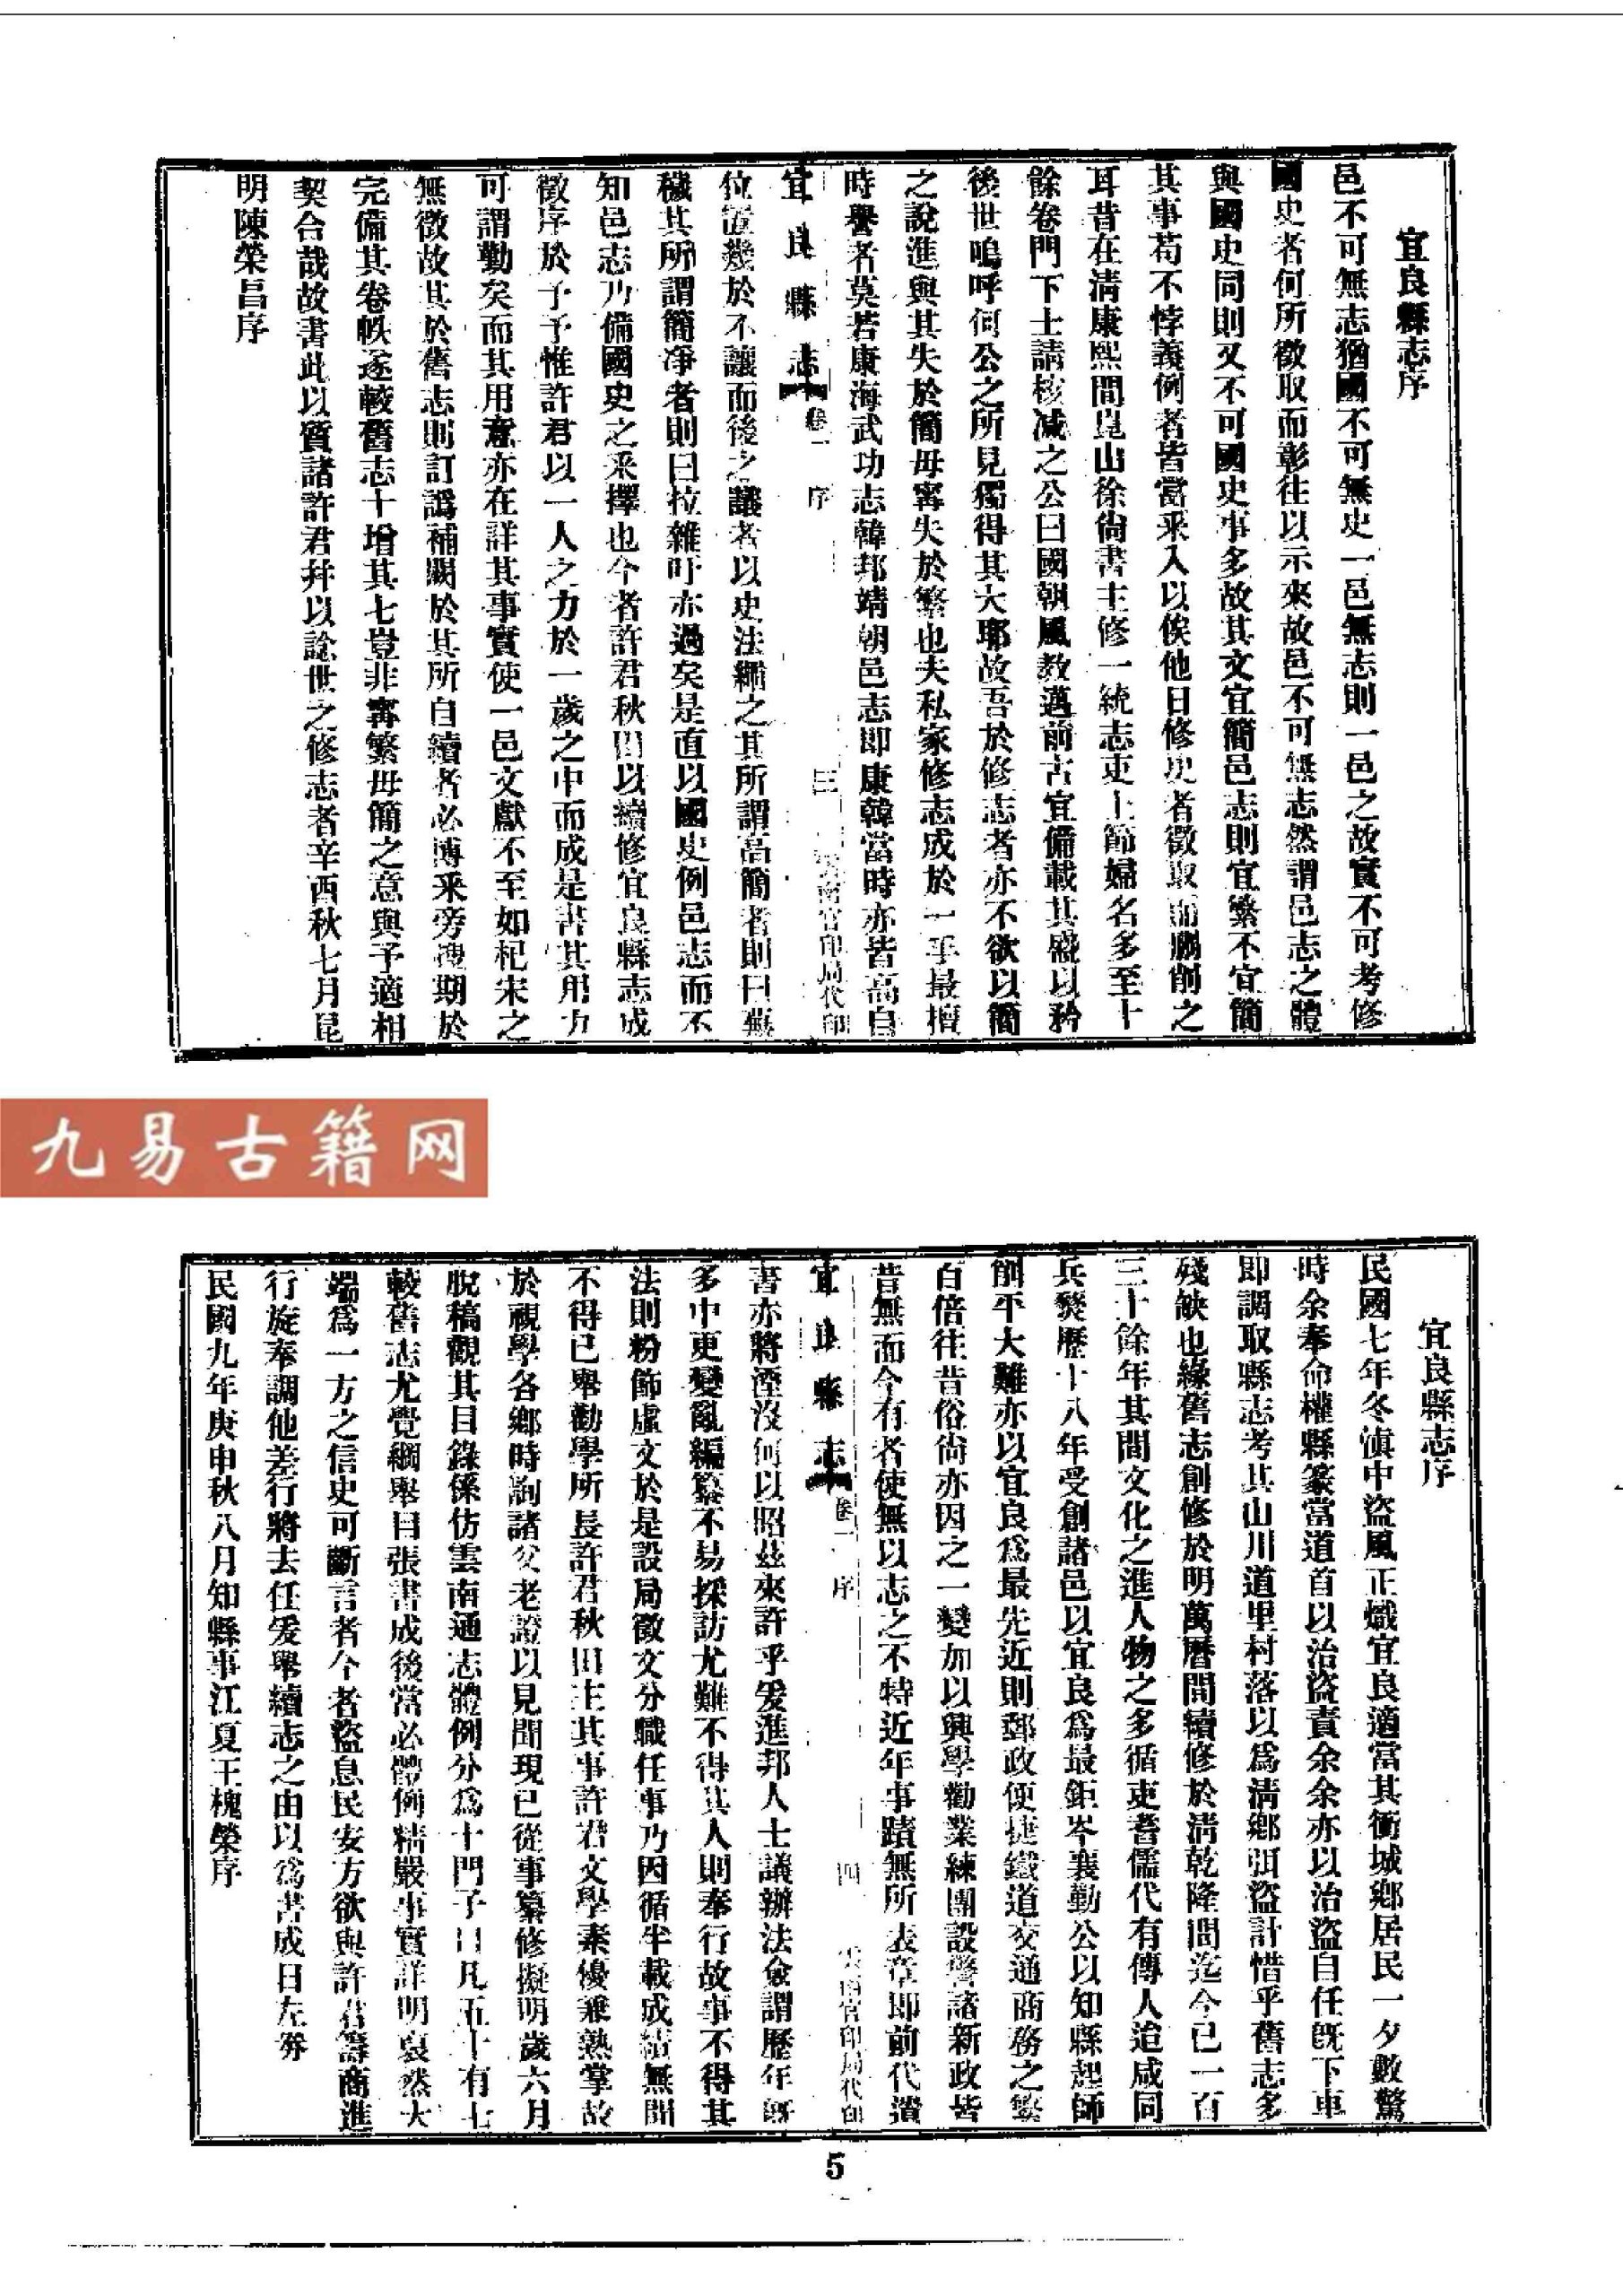 宜良縣志序
邑不可無志猶國不可無史一邑無志則一邑之故實不可考修
國史者何所徵取而彰往以示來故邑不可無志然謂邑志之體
與國史同則又不可國史事多故其文宜簡邑志則宜繁不宜簡
其事苟不悖義例者皆當采入以俟他日修史者徵取而刪削之
耳昔在淸康熙間崑山徐尙書主修一統志吏上節婦名多至十
餘卷門下士請核減之公曰國朝風敎邁前古宜備載其盛以矜
後世嗚呼何公之所見獨得其大耶故吾於修志者亦不欲以簡
之說進與其失於簡毋寗失於繁也夫私家修志成於一手最擅
時譽者莫若康海武功志韓邦靖朝邑志卽康韓當時亦皆高自
宜良縣志 卷一 序 三 雲南官印局代印
位置幾於不讓而後之議者以史法繩之其所謂高簡者則曰蕪
穢其所謂簡凈者則曰拉雜吁亦過矣是直以國史例邑志而不
知邑志乃備國史之采擇也今者許君秋田以續修宜良縣志成
徵序於予予惟許君以一人之力於一歲之中而成是書其用力
可謂勤矣而其用意亦在詳其事實使一邑文獻不至如杞宋之
無徵故其於舊志則訂譌補闕於其所自續者必博采旁搜期於
完備其卷帙遂較舊志十增其七豈非寗繁毋簡之意與予適相
契合哉故書此以質諸許君幷以諗世之修志者辛酉秋七月昆
明陳榮昌序
九易古籍网
宜良縣志序
民國七年冬滇中盜風正熾宜良適當其衝城鄉居民一夕數驚
時余奉命權縣篆當道首以治盜責余余亦以治盜自任旣下車
卽調取縣志考其山川道里村落以爲淸鄉弭盜計惜乎舊志多
殘缺也緣舊志創修於明萬曆間續修於淸乾隆間迄今已一百
三十餘年其間文化之進人物之多循吏耆儒代有傳人迨咸同
兵燹歷十八年受創諸邑以宜良爲最鉅岑襄勤公以知縣起師
削平大難亦以宜良爲最先近則郵政便捷鐵道交通商務之繁
百倍往昔俗尙亦因之一變加以興學勸業練團設警諸新政皆
昔無而今有者使無以志之不特近年事蹟無所表章卽前代遺
宜良縣志 卷一 序 四 雲南官印局代印
書亦將湮沒何以昭茲來許乎爰進邦人士議辦法僉謂歷年旣
多中更變亂編纂不易採訪尤難不得其人則奉行故事不得其
法則粉飾虛文於是設局徵文分職任事乃因循半載成績無聞
不得已舉勸學所長許君秋田主其事許君文學素優兼熟掌故
於視學各鄉時詢諸父老證以見聞現已從事纂修擬明歲六月
脫稿觀其目錄係仿雲南通志體例分爲十門子目凡五十有七
較舊志尤覺綱舉目張書成後當必體例精嚴事實詳明裒然大
端爲一方之信史可斷言者今者盜息民安方欲與許君籌商進
行旋奉調他差行將去任爰舉續志之由以爲書成日左劵
民國九年庚申秋八月知縣事江夏王槐榮序
5